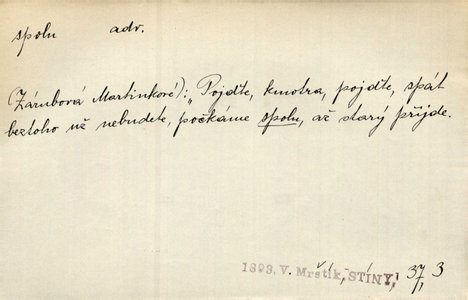 spolu adv.
(Zárubová Martinkové): „Pojďte, kmotra, pojďte, spát
beztoho už nebudete, počkáme spolu, až starý přijde.
1893, V. Mrštík, „STÍNY“, 37, 3